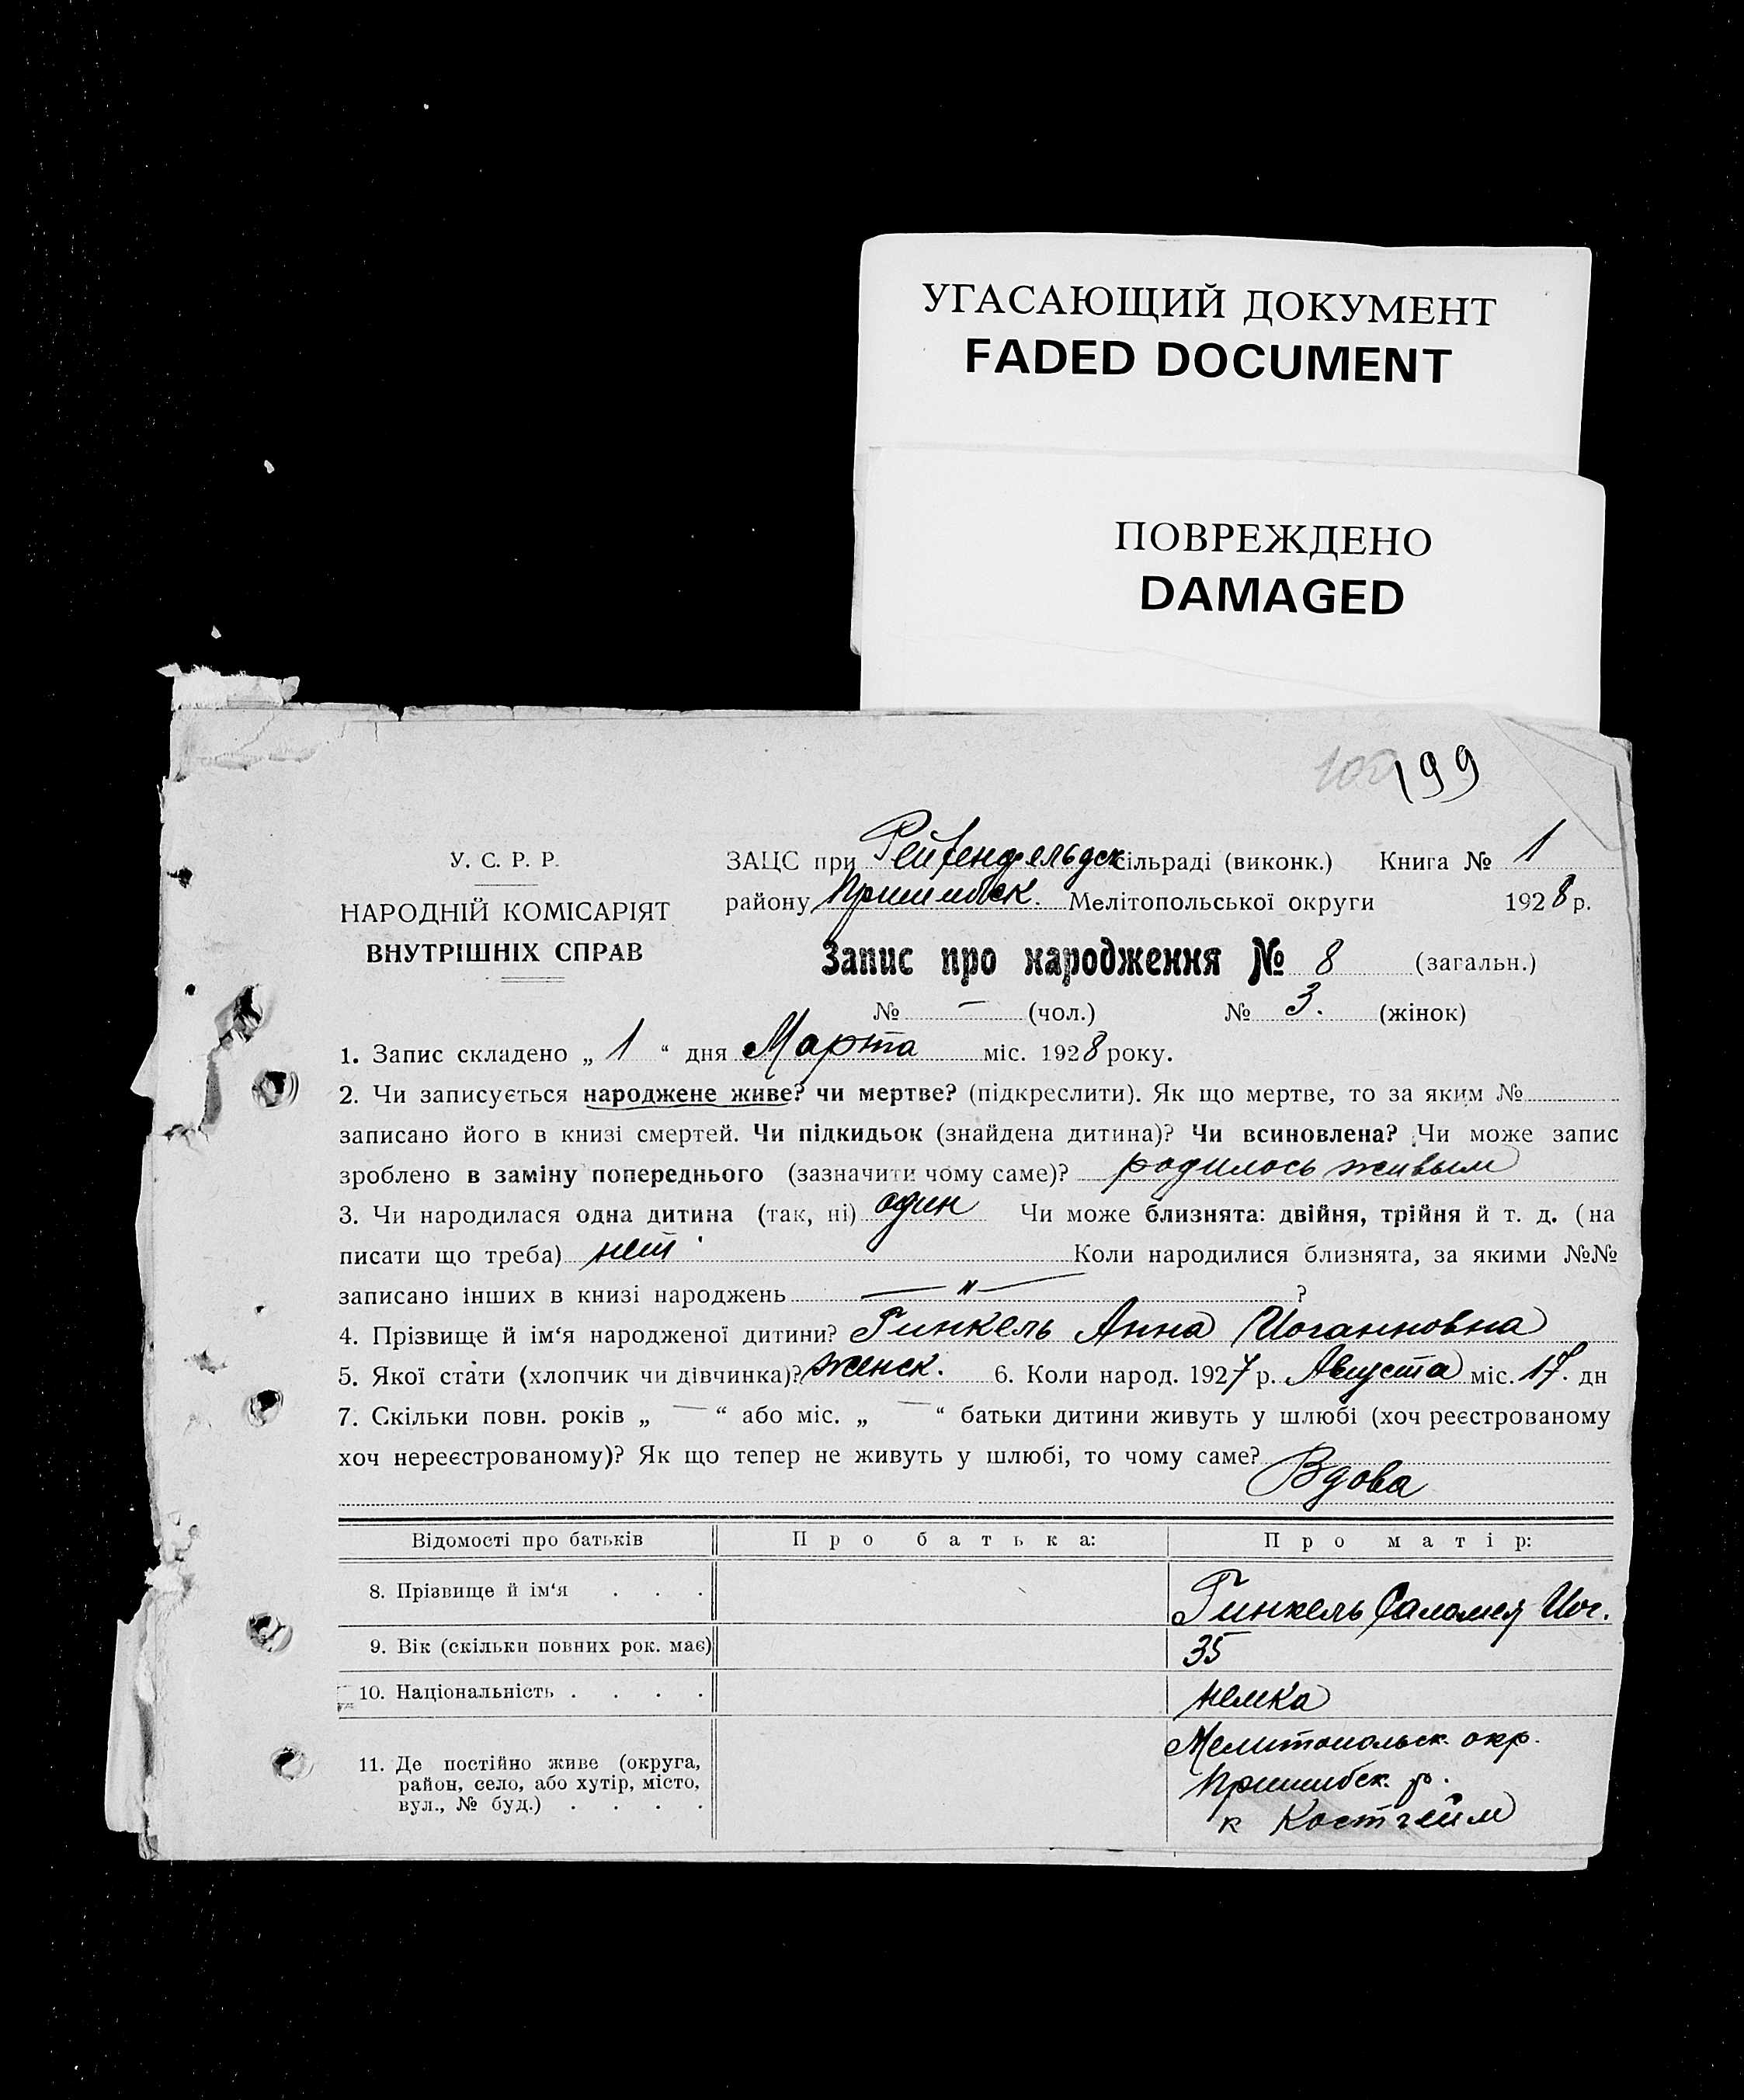 УГАСАЮЩИЙ ДОКУМЕНТ
FADED DOCUMENT
ПОВРЕЖДЕНО
DAMAGED
199
У. С. Р. Р.
НАРОДНІЙ КОМІСАРІЯТ
ВНУТРІШНІХ СПРАВ
ЗАЦС при Рейхенфельдск сільраді (виконк.) Книга № 1
району Пришибск. Мелітопольської округи 1928 р.
Запис про народження № 8 (загальн.)
№ — (чол.) № 3. (жінок)
1. Запис складено „ 1 “ дня Марта міс. 1928 року.
2. Чи записується народжене живе? чи мертве? (підкреслити). Як що мертве, то за яким №
записано його в книзі смертей. Чи підкидьок (знайдена дитина)? Чи всиновлена? Чи може запис
зроблено в заміну попереднього (зазначити чому саме)? родилось живым
3. Чи народилася одна дитина (так, ні) один Чи може близнята: двійня, трійня й т. д. (на
писати що треба) нет Коли народилися близнята, за якими №№
записано інших в книзі народжень — „ — ?
4. Прізвище й ім‘я народженої дитини? Гинкель Анна Иоганновна
5. Якої стати (хлопчик чи дівчинка)? женск. 6. Коли народ. 1927 р. Августа міс. 17. дн
7. Скільки повн. років „ — “ або міс. „ — “ батьки дитини живуть у шлюбі (хоч реєстрованому
хоч нереєстрованому)? Як що тепер не живуть у шлюбі, то чому саме?
Вдова
Відомості про батьків Про батька: Про матір:
8. Прізвище й ім‘я . . . Гинкель Саломея Иог.
9. Вік (скільки повних рок. має) 35
10. Національність . . . . немка
11. Де постійно живе (округа,
район, село, або хутір, місто,
вул., № буд.) . . . .
Мелитопольск. окр.
Пришибск. р.
к Костгейм